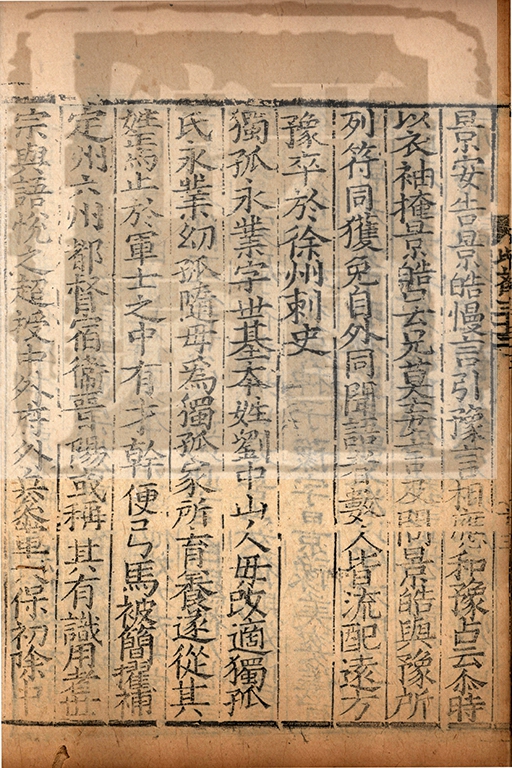 景安告景皓慢言引豫言相應和豫占云尒時
以衣袖掩景皓口云兄莫妄言及問景皓與豫所
列符同獲免自外同聞語者數人皆流配遠方
豫卒於徐州刺史
獨孤永業字世基本姓劉中山人母改適獨孤
氏永業幼孤隨母爲獨孤家所育養遂從其
姓焉止於軍士之中有才幹便弓馬被簡擢補
定州六州都督宿衞晉陽或稱其有識用者世
宗與語悅之超授中外府外兵參軍天保初除中